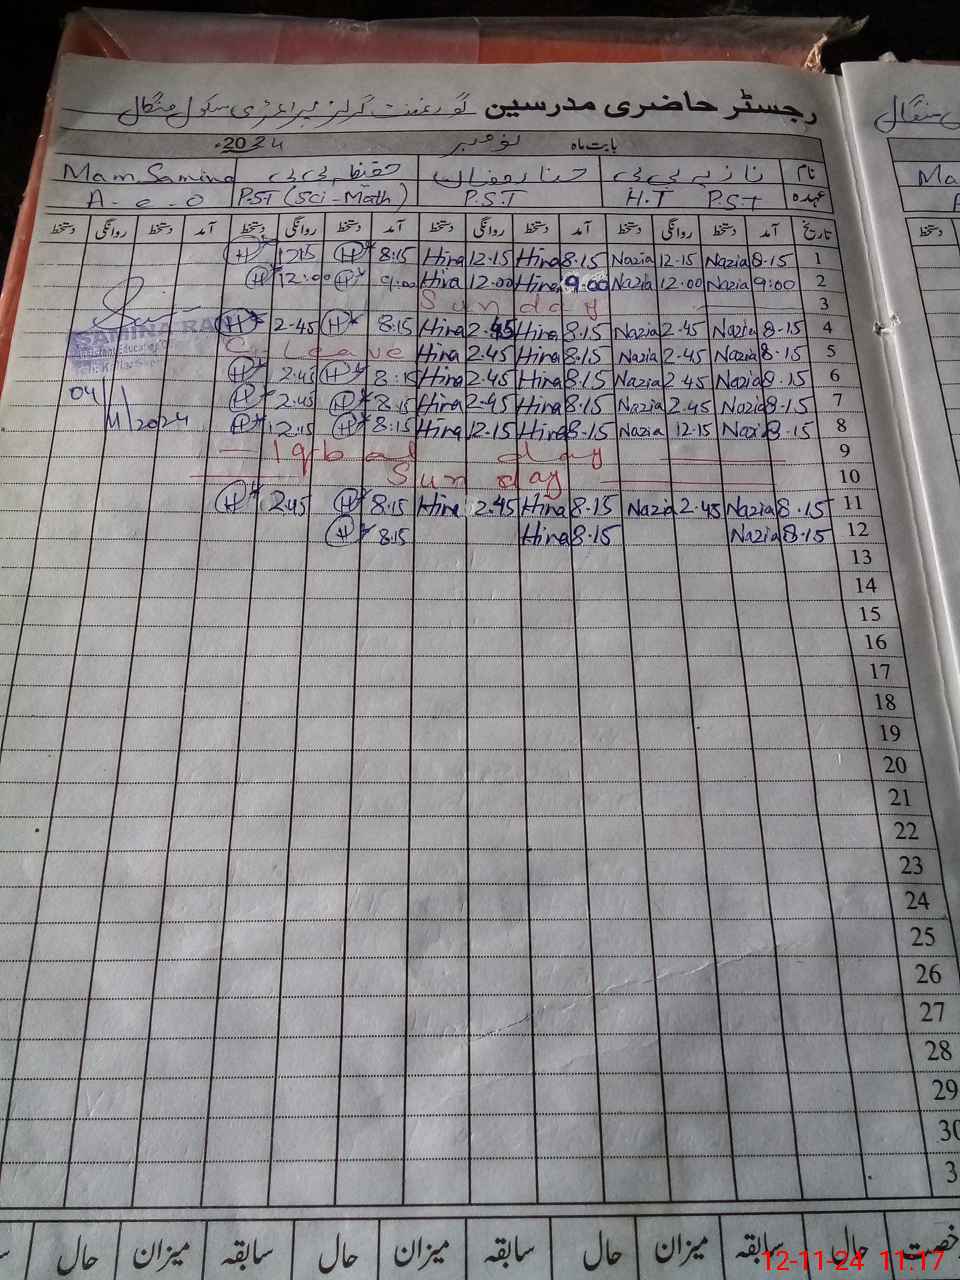 رجسٹر حاضری مدرسین گورنمنٹ گرلز پرائمری سکول منگال
بابت ماہ نومبر 2024ء
نام نازیہ بی بی حنا رمضان حفیظہ بی بی Mam Samina
عہدہ H.T P.S.T P.S.T P.ST (Sci-Math) A-e-o
تاریخ آمد دستخط روانگی دستخط آمد دستخط روانگی دستخط آمد دستخط روانگی دستخط آمد دستخط روانگی دستخط
1 8.15 Nazia 12.15 Nazia 8.15 Hina 12.15 Hina 8.15 H 12.15 H
2 9:00 Nazia 12.00 Nazia 9.00 Hina 12.00 Hina 9:00 H 12:00 H
3 Sunday
4 8.15 Nazia 2.45 Nazia 8.15 Hina 2.45 Hina 8.15 H 2.45 H
SAMINA
5 8.15 Nazia 2.45 Nazia 8.15 Hina 2.45 Hina C. Leave
6 8.15 Nazia 2.45 Nazia 8.15 Hina 2.45 Hina 8:15 H 2.45 H
7 8.15 Nazia 2.45 Nazia 8.15 Hina 2.45 Hina 8.15 H 2.45 H
04/11/2024
8 8.15 Nazia 12.15 Nazia 8.15 Hina 12.15 Hina 8:15 H 12.15 H
9 Iqbal day
10 Sunday
11 8.15 Nazia 2.45 Nazia 8.15 Hina 2.45 Hina 8.15 H 2.45 H
12 8.15 Nazia 8.15 Hina 8.15 H
13
14
15
16
17
18
19
20
21
22
23
24
25
26
27
28
29
30
3
حال سابقہ میزان حال سابقہ میزان حال سابقہ میزان حال
12-11-24 11:17